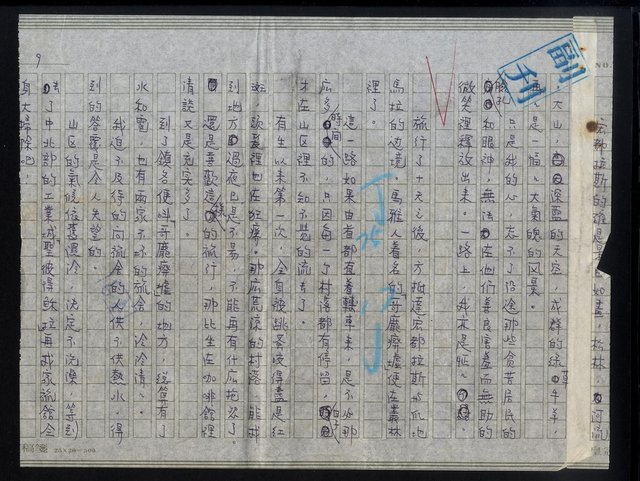 宏都拉斯的確是
如畫，松林，
大山，深藍的天空，成群的綠草牛羊，
是一幅大氣魄的风景。
只是我的心，忘不了沿途那些貧苦居民的
臉孔和眼神，無法在他們善良害羞而無助的
微笑裡釋放出來。一路上，我亦是
旅行了十天之後，方抵達宏都拉斯与瓜地
馬拉的边境。馬雅人著名的哥龐廢墟便在叢林
裡了。
這一路如果由首都直着轉車來，是不必那
広多時间的，只因每一了村落都有停留，日子
才在山区裡不知不覚的流去了。
有生以來第一次，全身被跳蚤咬得盡是紅
斑，頭髮裡也在狂癢。那広荒涼的村落，能找
到地方過夜已是不易，不能再有什広抱怨了。
還是喜歡這樣的旅行，那比坐在咖啡館裡
清談又是充实多了。
到了鎮名便叫哥龐廢墟的地方，総算有了
水和電，也有兩家不坏的旅舍，冷冷清清。
我迫不及待的问旅舍的人供不供热水，得
到的答案是令人失望的。
山区的氣候依舊湿冷，決定不洗澡，等到
了中北部的工業城聖彼得穌拉再找家旅館全
身大掃除吧。
9
副刊
25×20=500